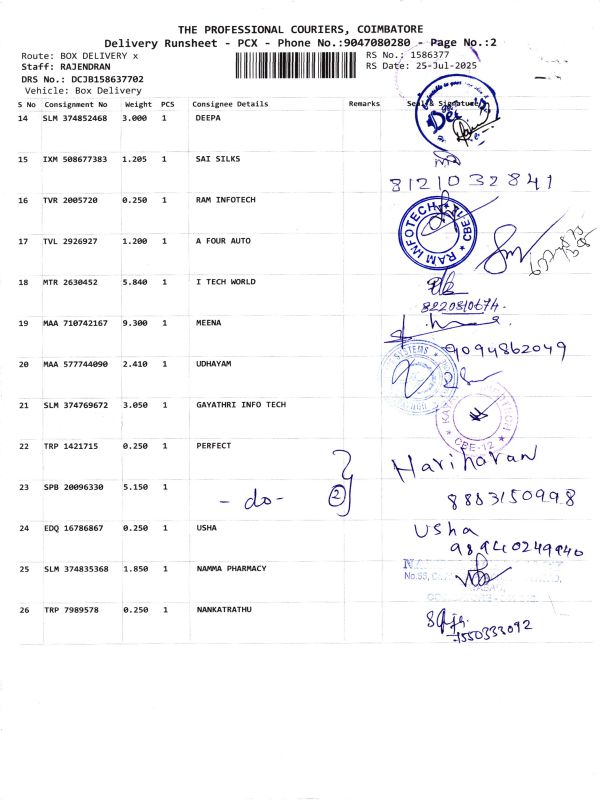 THE PROFESSIONAL COURIERS, COIMBATORE
Delivery Runsheet - PCX - Phone No.:9047080280 - Page No.:2
Route: BOX DELIVERY x RS No.: 1586377
Staff: RAJENDRAN RS Date: 25-Jul-2025
DRS No.: DCJB158637702
Vehicle: Box Delivery
S No Consignment No Weight PCS Consignee Details Remarks Seal & Signature
14 SLM 374852468 3.000 1 DEEPA
15 IXM 508677383 1.205 1 SAI SILKS
8121032841
16 TVR 2005720 0.250 1 RAM INFOTECH
RAM INFOTECH CBE-12
17 TVL 2926927 1.200 1 A FOUR AUTO
18 MTR 2630452 5.840 1 I TECH WORLD
8220810674.
19 MAA 710742167 9.300 1 MEENA
9094862049
20 MAA 577744090 2.410 1 UDHAYAM
SYSTEMS
21 SLM 374769672 3.050 1 GAYATHRI INFO TECH
CBE-12
22 TRP 1421715 0.250 1 PERFECT
Hariharan
23 SPB 20096330 5.150 1
- do - 2
8883150998
24 EDQ 16786867 0.250 1 USHA
Usha
989440249940
25 SLM 374835368 1.850 1 NAMMA PHARMACY
26 TRP 7989578 0.250 1 NANKATRATHU